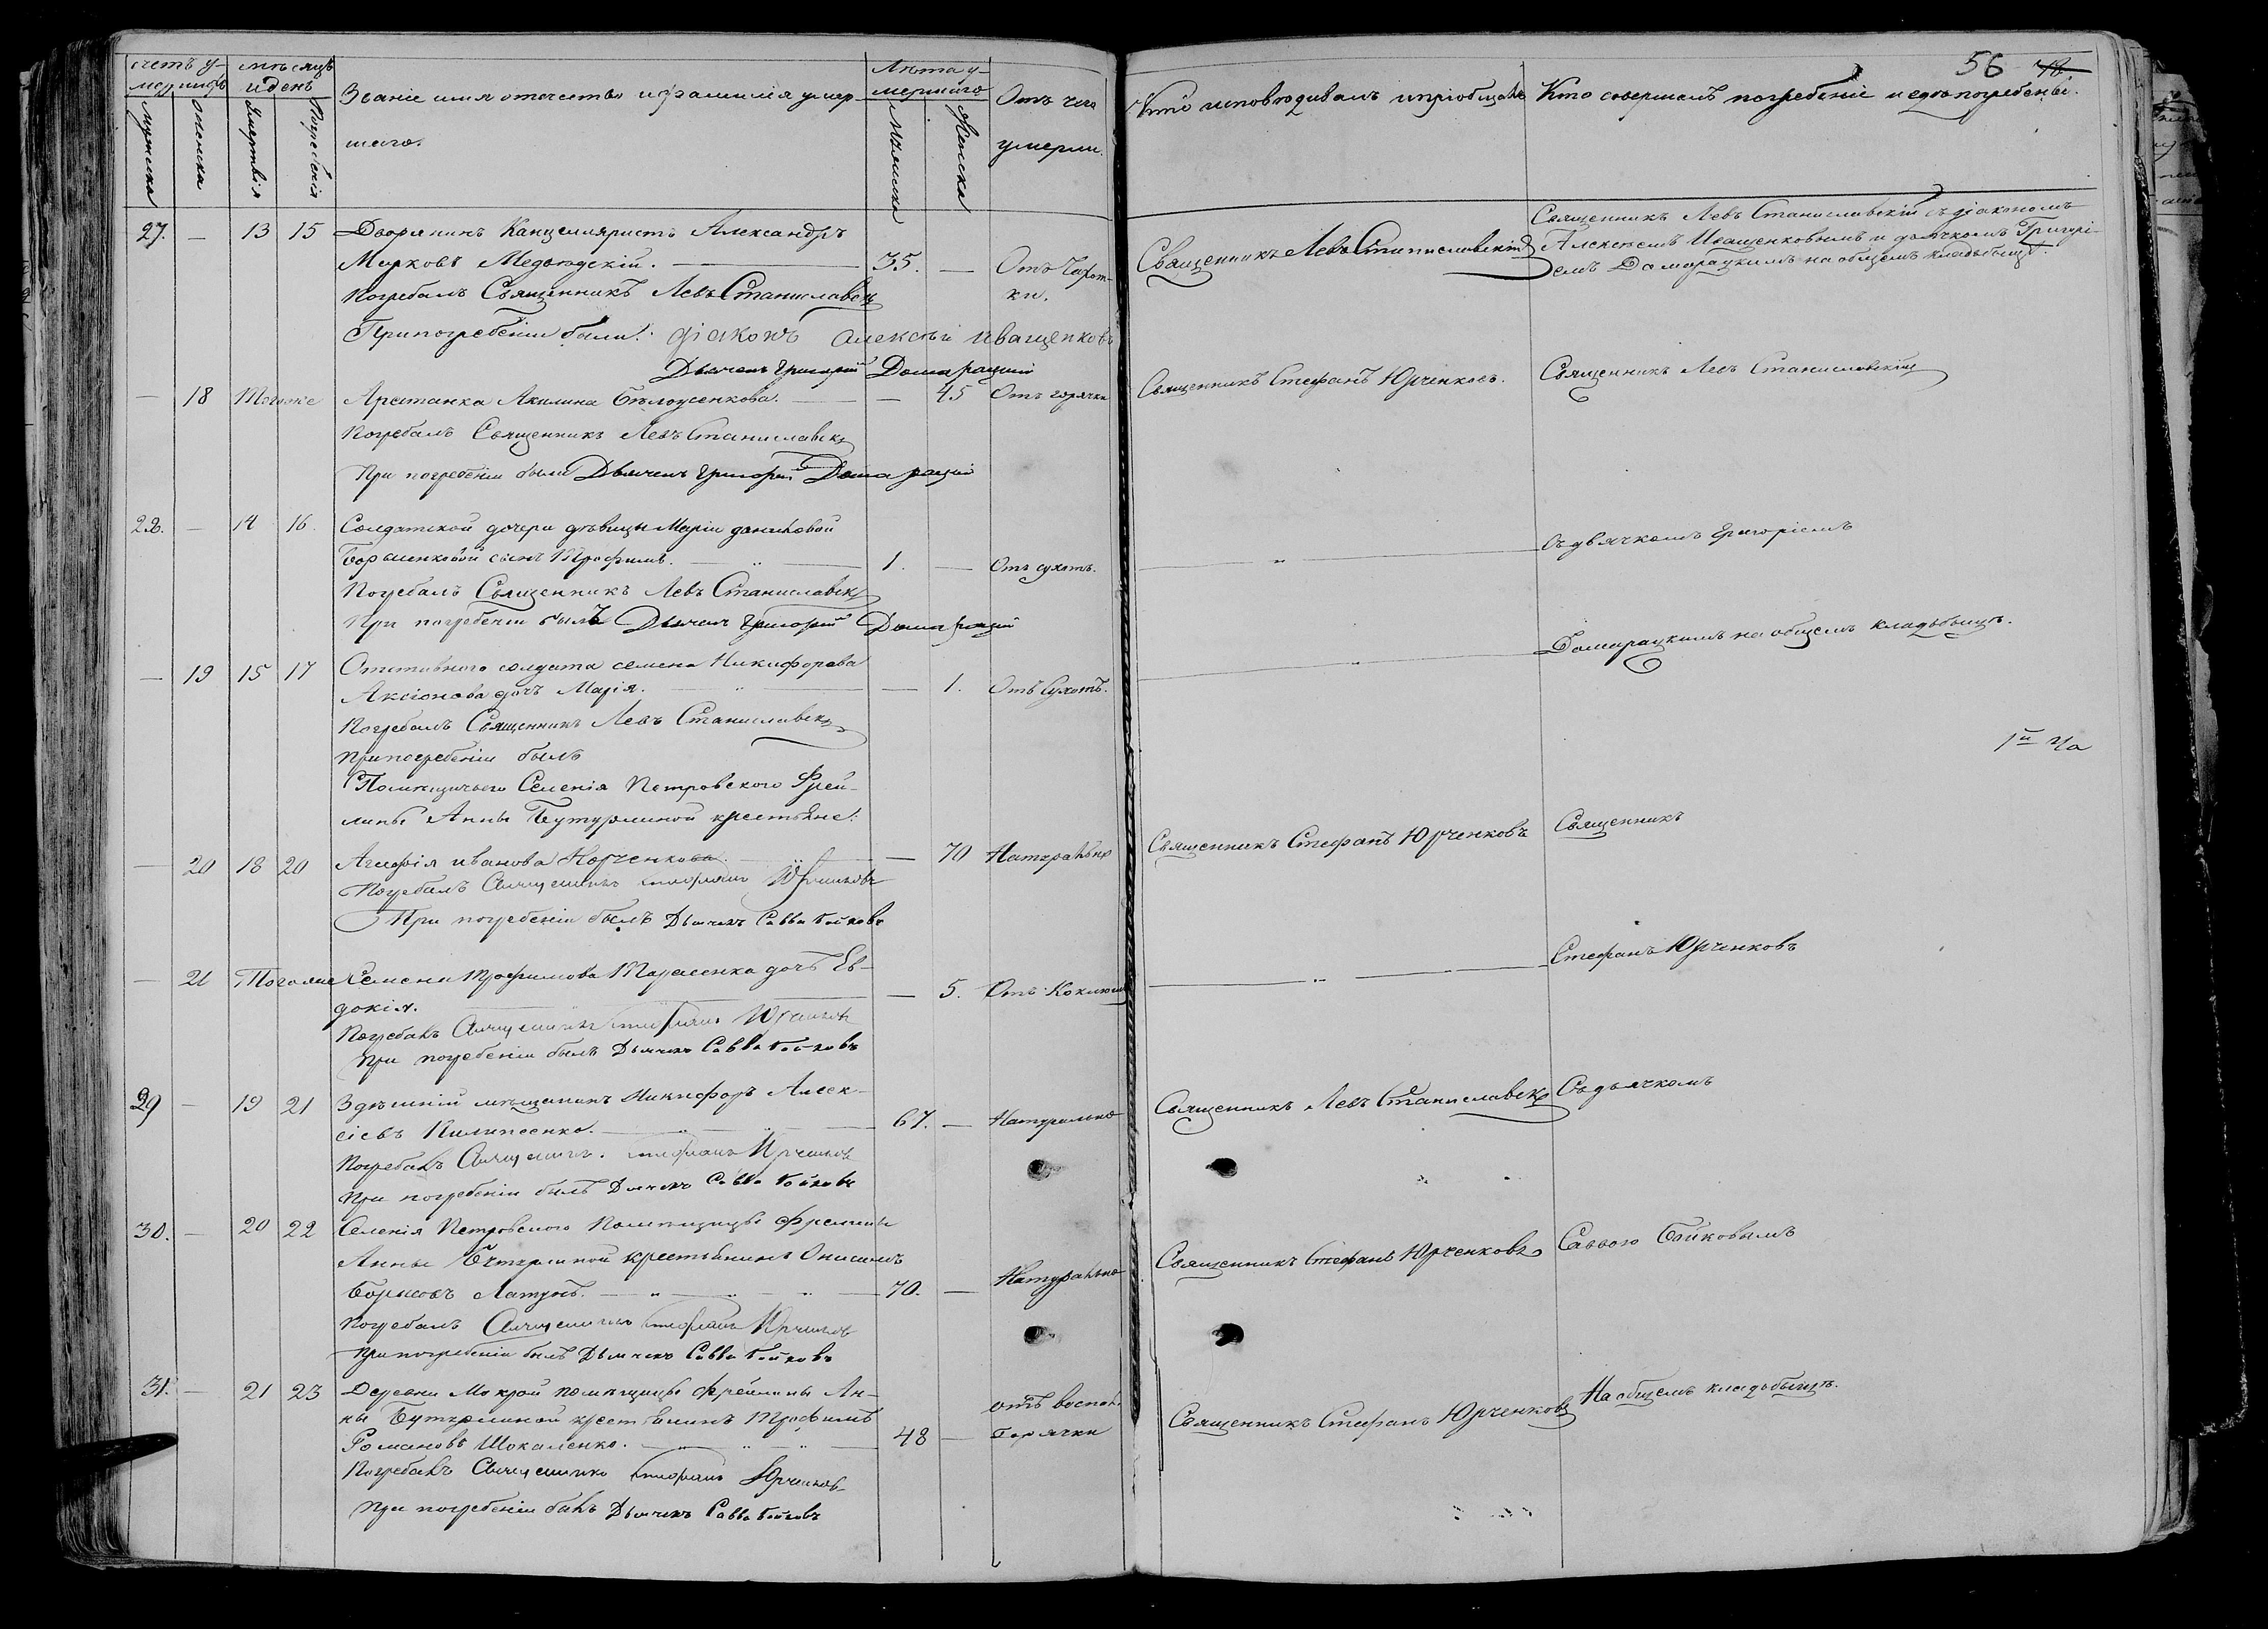 счетъ у-
мершихъ
мѣсяцъ
и день
Званіе имя отечество и фамилія умер-
шаго.
Лѣта у-
мершаго
Отъ чего
умерли.
Мужеска
Женска
Умертвія
Погребенія
Мужеска
Женска
27. — 13 15 Дворянинъ Канцеляристъ Александръ
Марковъ Медвѣдскій. — 35. — Отъ Чахот-
ки.
Погребалъ Священникъ Левъ Станиславск
При погребеніи были: діаконъ Алексѣй Иващенковъ
Дьячекъ Григорій Домарацкій
— 18 Тогоже Арстанка Акилина Бѣлоусенкова. — — 45 Отъ горячки
Погребалъ Священникъ Левъ Станиславск
При погребеніи были Дьячекъ Григорій Домарацкій
28. — 14 16. Солдатской дочери дѣвицы Маріи Даниловой
сынъ Трофимъ. — 1. — Отъ сухотъ.
Погребалъ Священникъ Левъ Станиславск
При погребеніи былъ Дьячекъ Григорій Домарацкій
— 19 15 17 Отставного солдата Семена Никифорова
Аксіонова дочь Марія. — — 1. Отъ Сухотъ.
Погребалъ Священникъ Левъ Станиславск
При погребеніи былъ
Помѣщичьяго Селенія Петровского Фрей-
лины Анны Бутурлиной крестьяне:
— 20 18 20 Агафія Иванова Корченкова. — — 70 Натурально
Погребалъ Священникъ Стефанъ Юрченковъ
При погребеніи былъ Дьячекъ Савва Бойковъ
— 21 Тогоже Семена Трофимова Тарасенка дочь Ев-
докія. — — 5. Отъ Коклюша
Погребалъ Священникъ Стефанъ Юрченковъ
При погребеніи былъ Дьячекъ Савва Бойковъ
29 — 19 21 Здѣшній мѣщанинъ Никифоръ Алек-
сіевъ Пилипсенко. — 67. — Натурально
Погребалъ Священникъ Стефанъ Юрченковъ
При погребеніи былъ Дьячекъ Савва Бойковъ
30. — 20 22 Селенія Петровского Помѣщицы Фрейлины
Анны Бутурлиной крестьянинъ Онисимъ
Борисовъ Латунъ. — 70. — Натурально
Погребалъ Священникъ Стефанъ Юрченковъ
При погребеніи былъ Дьячекъ Савва Бойковъ
31. — 21 23 Деревни Мокрой помѣщицы фрейлины Ан-
ны Бутурлиной крестьянинъ Трофимъ
Романовъ Шокаленко. — 48 — отъ воспал.
Горячки
Погребалъ Священникъ Стефанъ Юрченковъ
При погребеніи былъ Дьячекъ Савва Бойковъ
56
Кто исповѣдивалъ и пріобщалъ
Кто совершалъ погребеніе и гдѣ погребены.
Священникъ Левъ Станиславскій
Священникъ Левъ Станиславскій съ діакономъ
Алексѣемъ Иващенковымъ и дьячкомъ Григорі-
емъ Домарацкимъ на общемъ кладбищѣ.
Священникъ Стефанъ Юрченковъ.
Священникъ Левъ Станиславскій
Съ дьячкомъ Григоріемъ
Домарацкимъ на общемъ кладьбыщѣ.
Священникъ Стефанъ Юрченковъ
Священникъ
Стефанъ Юрченковъ
Священникъ Левъ Станиславск
Съ дьячкомъ
Священникъ Стефанъ Юрченковъ
Саввою Бойковымъ
Священникъ Стефанъ Юрченковъ
На общемъ кладьбыщѣ.